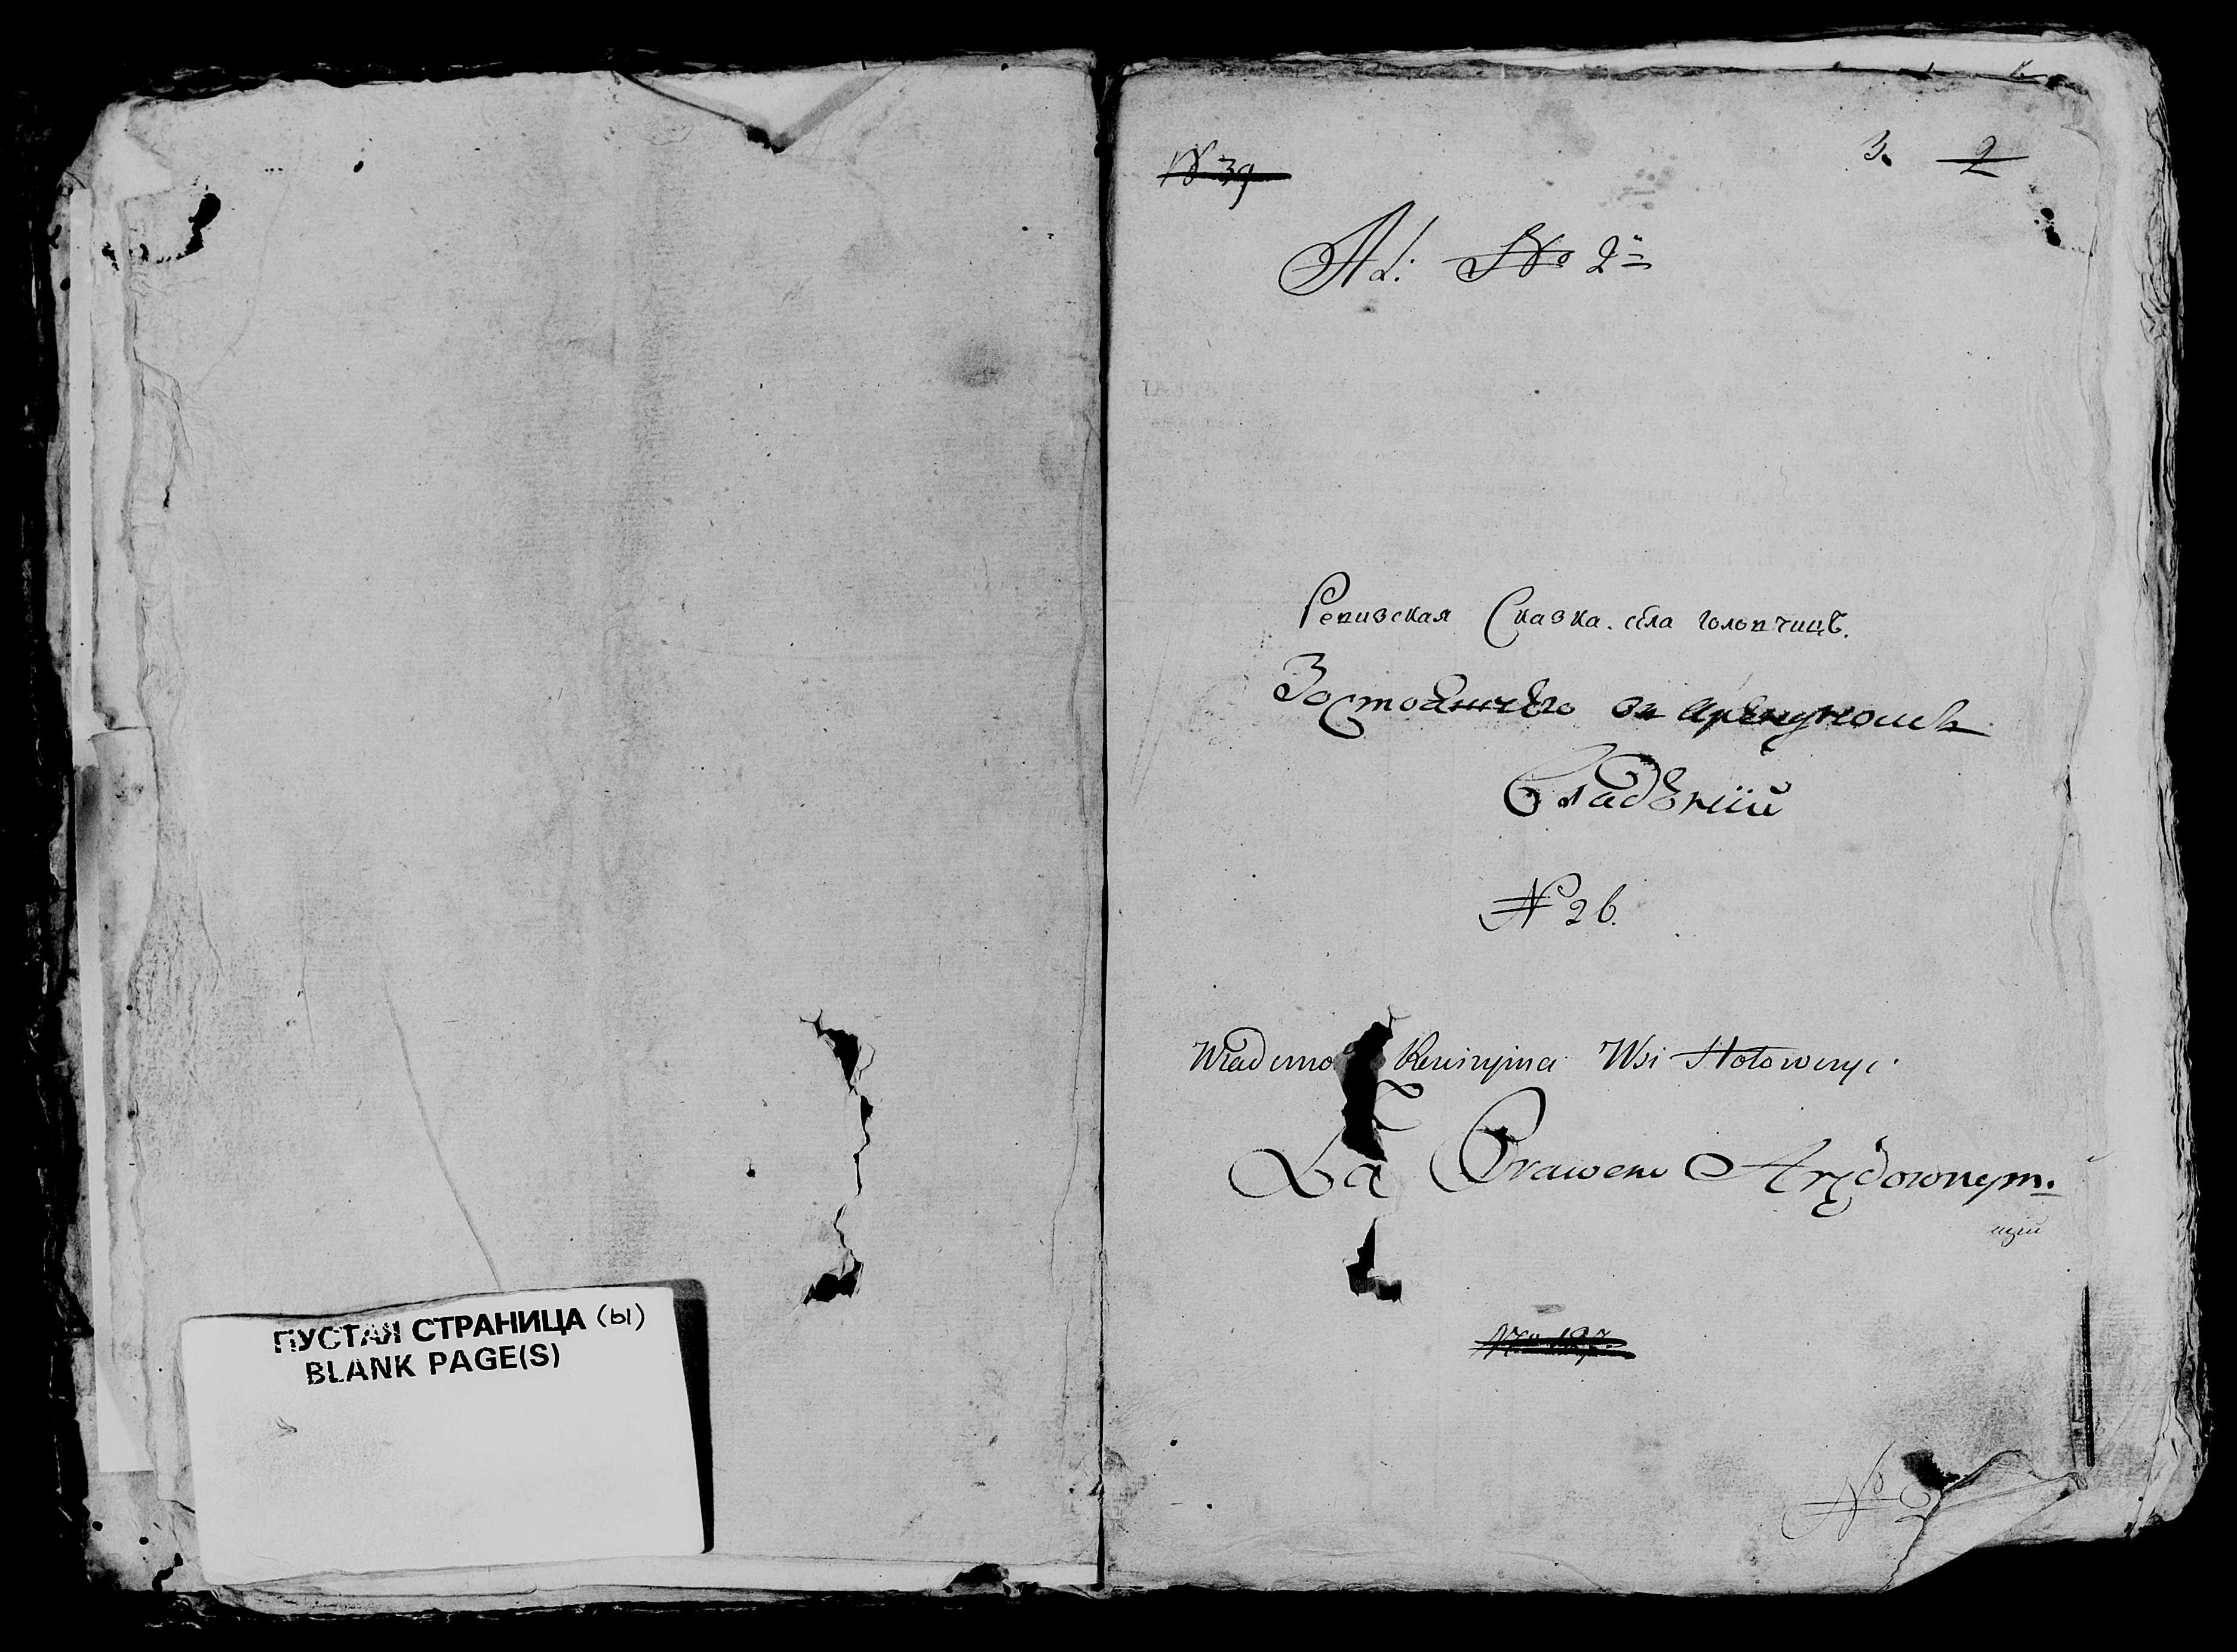 ПУСТАЯ СТРАНИЦА (ы)
BLANK PAGE(S)
№ 39
3. 2
Ad: No 2
Ревизская Сказка. села головчицъ.
Состоящего въ арендномъ
Владѣнїй
№ 26.
Wiadomo Rewizyina Wsi Hołowczyc.
Za Prawem AręDownym.
No 127.
No